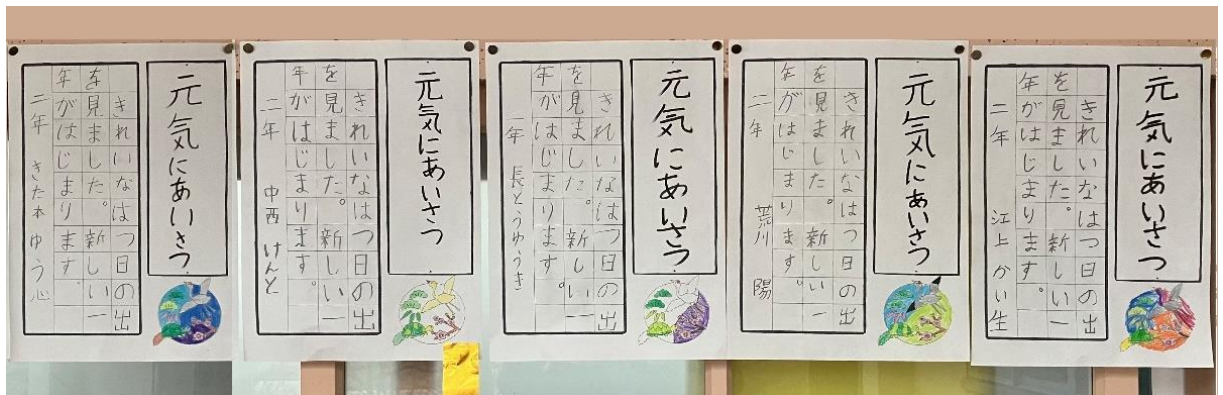 元気にあいさつ
きれいなはつ日の出
を見ました。新しい一
年がはじまります。
二年 江上 かい生
元気にあいさつ
きれいなはつ日の出
を見ました。新しい一
年がはじまります。
二年 荒川 陽
元気にあいさつ
きれいなはつ日の出
を見ました。新しい一
年がはじまります。
二年 長とうゆうき
元気にあいさつ
きれいなはつ日の出
を見ました。新しい一
年がはじまります。
二年 中西 けんと
元気にあいさつ
きれいなはつ日の出
を見ました。新しい一
年がはじまります。
二年 きた本 ゆう心